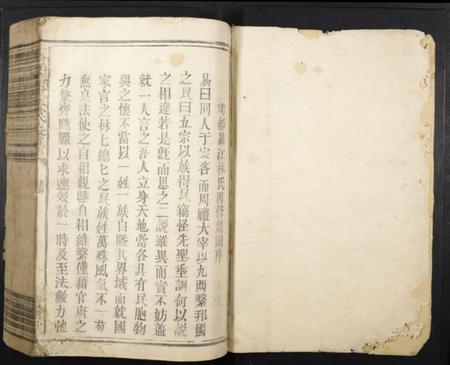 雩都縣江林氏四修族圖序
易曰同人于宗吝而周禮大宰以九兩繫邦國
之民曰五宗以族得民竊怪先聖垂訓何以說
之相違若是旣而思之二說雖異而實不妨蓋
就一人言之吾人立身天地當各具有民胞物
與之懷不當以一姓一族自暱其界域而就國
家言之林七總七之民族姓萬殊風氣不一苟
無良法使之自相親睦自相維繫僅藉官府之
力整齊驅驟以求速效於一時及至法敝力弛